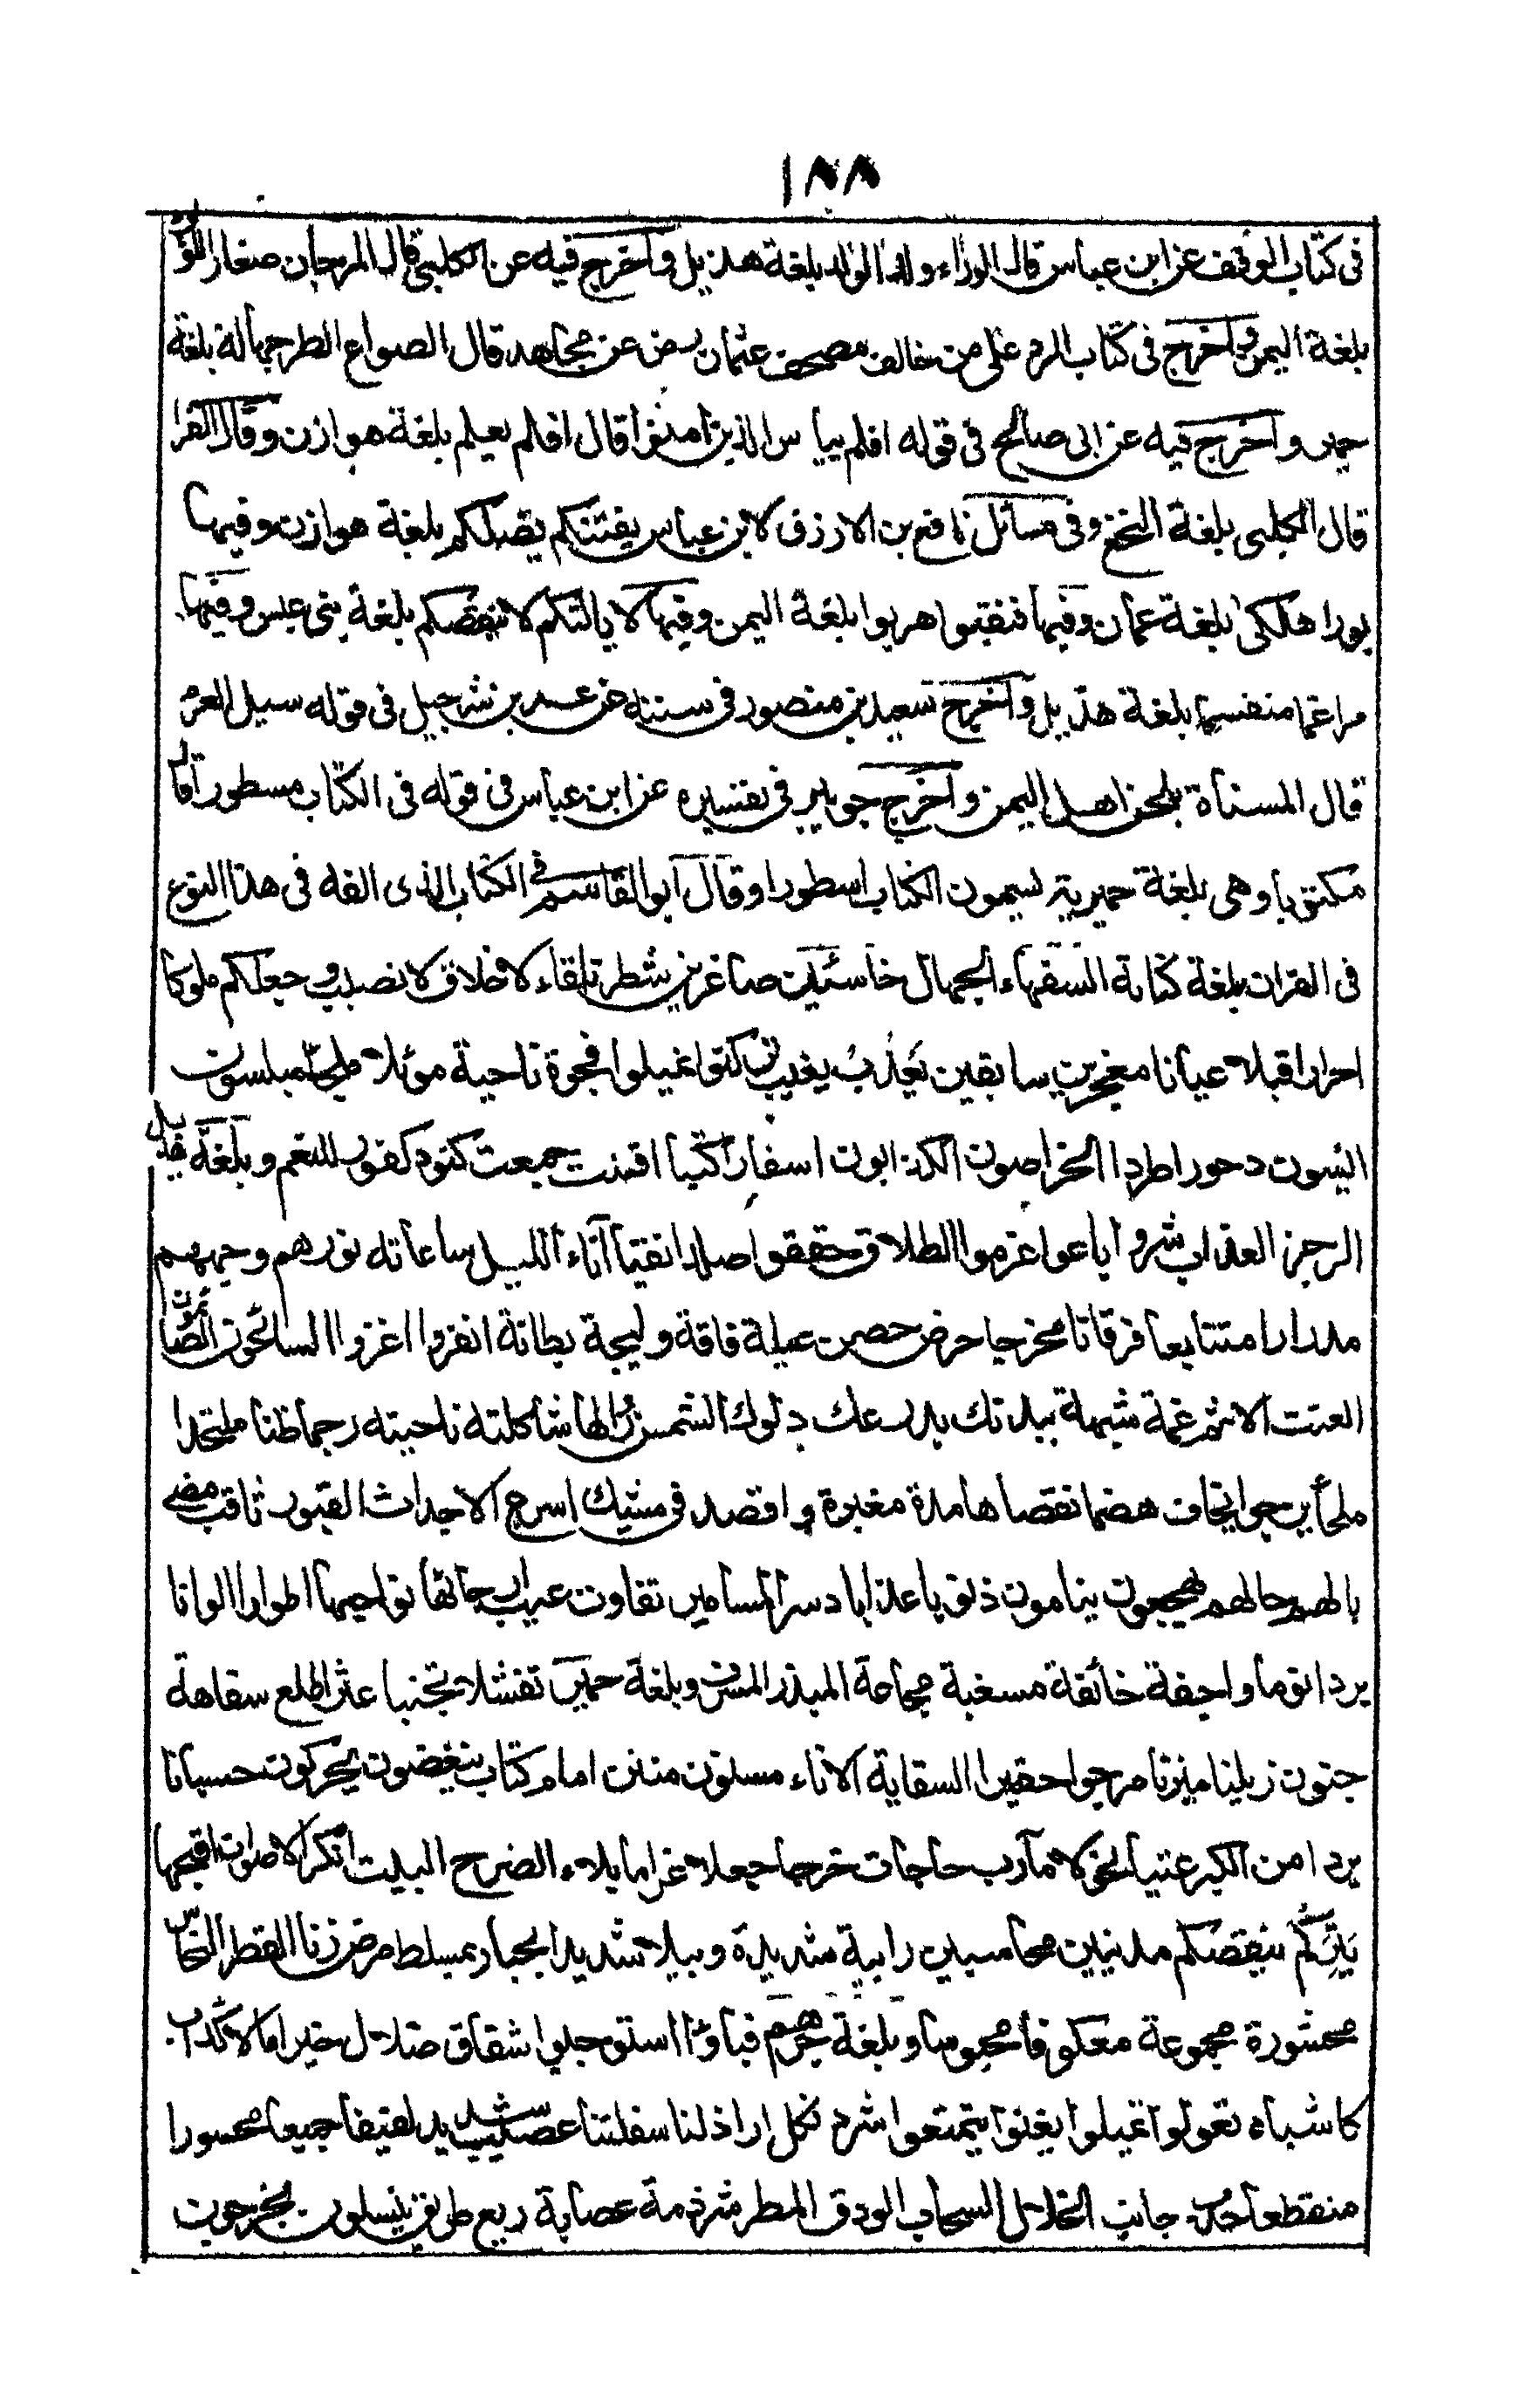 ١٨٨
فى كتاب الوقف عن ابن عباس قال الوزاء ولد الولد بلغة هذيل واخرج فيه عن الكلبى قال المرجان صغار اللؤلؤ
بلغة اليمن واخرج فى كتاب الرد على من خالف مصحف عثمان رض عن مجاهد قال الصواع الطرجهالة بلغة
حمير واخرج فيه عن ابى صالح فى قوله افلم ييأس الذين امنوا قال افلم يعلم بلغة هوازن وقال الفرا
قال الكلبى بلغة النخع وفى مسائل نافع بن الازرق لابن عباس يفتنكم يضلكم بلغة هوازن وفيها
بورا هلكى بلغة عمان وفيها فنقبوا هربوا بلغة اليمن وفيها لا يالتكم لا ينقصكم بلغة بنى عبس وفيها
مراغما منفسحا بلغة هذيل واخرج سعيد بن منصور فى سننه عن عمرو بن شرحبيل فى قوله سيل العرم
قال المسناة بلحن اهل اليمن واخرج جويبر فى تفسيره عن ابن عباس فى قوله فى الكتاب مسطورا قال
مكتوبا وهى بلغة حميرية يسمون الكتاب اسطورا وقال ابو القاسم فى الكتاب الذى الفه فى هذا النوع
فى القران بلغة كنانة السفهاء الجهال خاسئين صاغرين شطر تلقاء لا خلاق لا نصيب وجعلكم ملوكا
احرارا قبلا عيانا معجزين سابقين يعزب يغيب تركنوا تميلوا فجوة ناحية موئلا ملجأ مبلسون
ايسون دحورا طردا الخراصون الكذابون اسفارا كتبا اقتت جمعت كنود كفور للنعم وبلغة هذيل
الرجز العذاب شروا باعوا عزموا الطلاق حققوا صلدا نقيا آناء الليل ساعاته فورهم وجههم
مدرارا متتابعا فرقانا مخرجا حرض حصن عيلة فاقة وليجة بطانة انفروا اغزوا السائحون الصائمون
العنت الاثم غمة شبهة ببدنك بدرعك دلوك الشمس زوالها شاكلته ناحيته رجما ظنا ملتحدا
ملجأ يرجوا يخاف هضما نقصا هامدة مغبرة واقصد فى مشيك اسرع الاجداث القبور ثاقب مضئ
بالهم حالهم يهجعون ينامون ذنوبا عذابا دسر المسامير تفاوت عيب ارجائها نواحيها اطوارا الوانا
بردا نوما واجفة خائفة مسغبة مجاعة المبذر المسرف وبلغة حمير تفشلا تجبنا عثر اطلع سفاهة
جنون زيلنا ميزنا مرجوا حقيرا السقاية الاناء مسنون منتن امام كتاب ينغضون يحركون حسبانا
بردا من الكبر عتيا نحولا مآرب حاجات خرجا جعلا غراما بلاء الصرح البيت انكر الاصوات اقبحها
يتركم ينقصكم مدينين محاسبين رابية شديدة وبيلا شديدا بجبار بمسلط مرض زنا القطر النحاس
محشورة مجموعة معكوفا محبوسا وبلغة جرهم فباؤا استوجبوا شقاق ضلال خيرا مالا كداب
كاشباه تعولوا تميلوا يغنوا يتمتعوا شرد نكل اراذلنا سفلتنا عصيب شديد لفيفا جميعا محسورا
منقطعا حدب جانب الخلال السحاب الودق المطر شرذمة عصابة ريع طريق ينسلون يخرجون